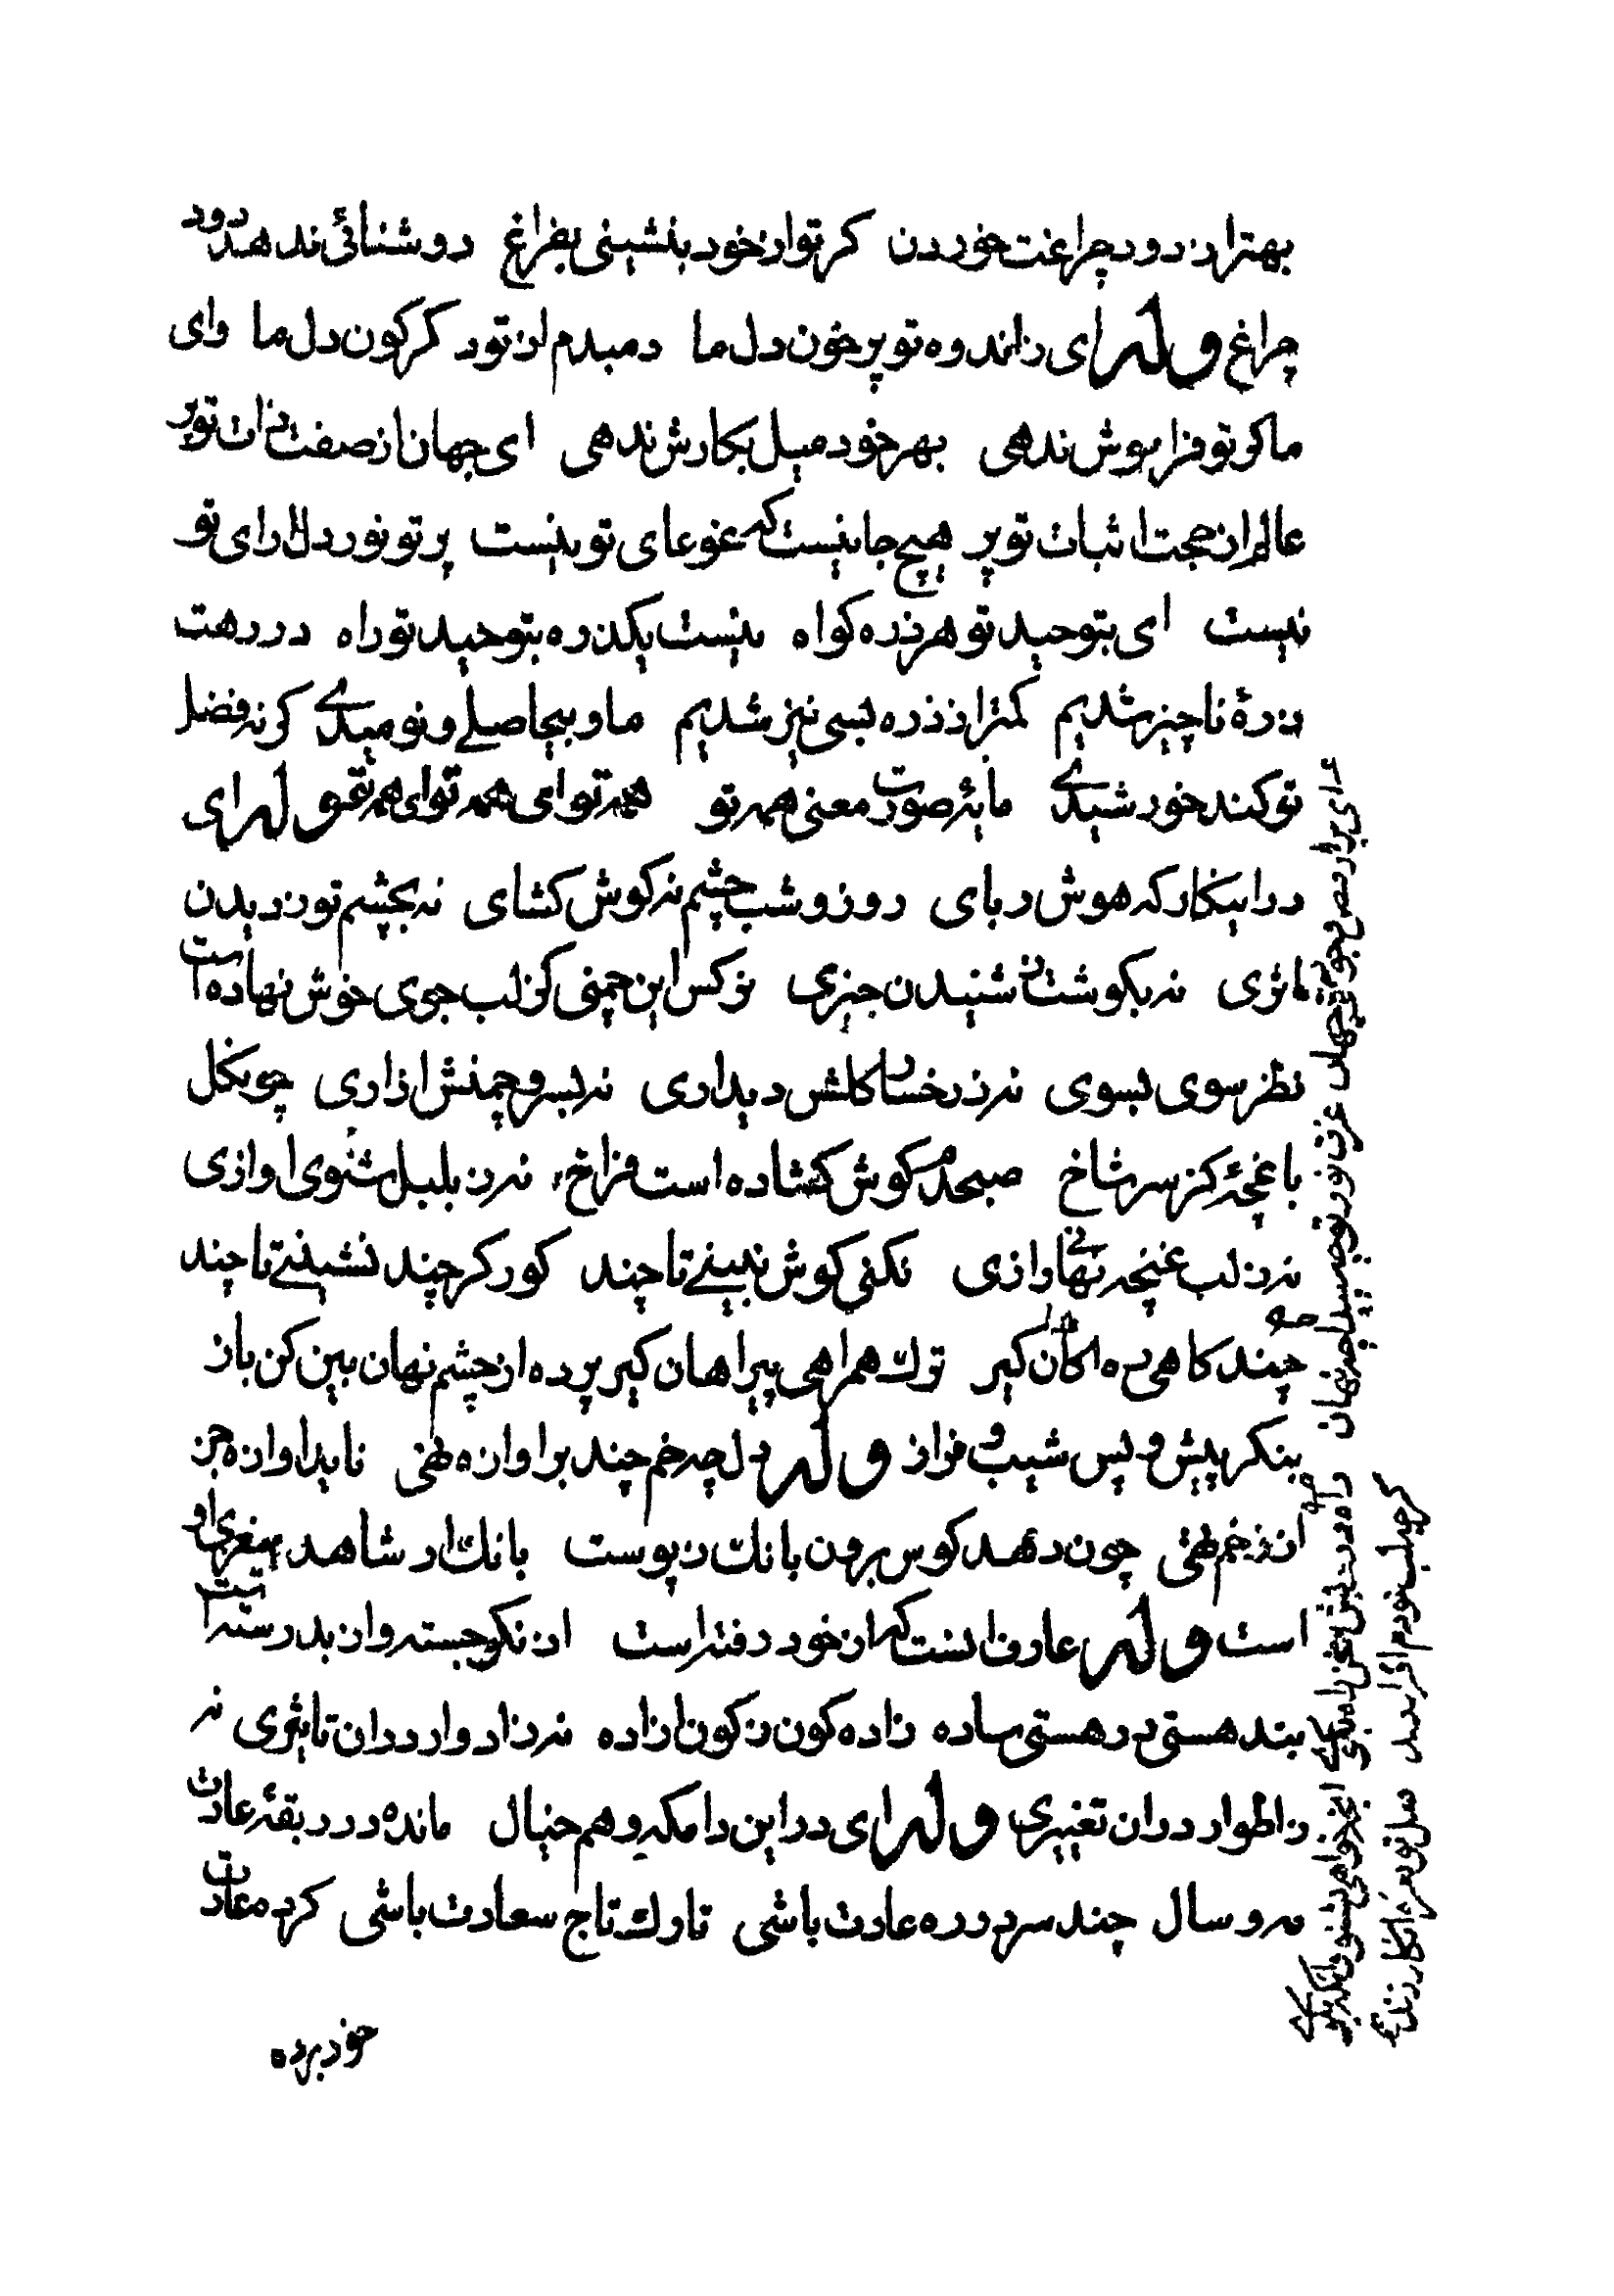 بهتر از دود چراغت خوردن کر تو از خود بنشینی بفراغ روشنائی ندهد دود
چراغ وله ای ز اندوه تو پر خون دل ما دمبدم از تو دکرکون دل ما وای
ما کر تو فراموش ندهی بهر خود میل بکارش ندهی ای جهان از صفت ذات تو پر
عالم از حجت اثبات تو پر هیچ جا نیست که غوغای تو نیست پرتو نور دلارای تو
نیست ای بتوحید تو هر ذره کواه نیست یکذره بتوحید تو راه در رهت
ذرهٔ ناچیز شدیم کمتر از ذره بسی نیز شدیم ما و بیحاصلے و نومیدے کر نه فضل
تو کند خورشیدے مایهٔ صورت معنی همه تو همه تو ای همه تو ای همه تو وله ای
در اینکارکه هوش ربای روز و شب چشم نه کوش کشای نه بچشم تو ز دیدن
اثری نه بکوشت ز شنیدن خبری نرکس این چمنی کز لب جوی خوش نهاده است
نظر سوی بسوی نه ز رخسار کلش دیداری نه بسرو چمنش ازاری چو بکل
با غنچهٔ کز سر شاخ صبحدم کوش کشاده است فراخ نه ز بلبل شنوی اوازی
نه ز لب غنچه نهانے رازی نکنی کوش نبینے تا چند کور کر چند نشینے تا چند
چند کاهی ره اکاهان کیر ترک همراهی بیراهان کیر پرده از چشم نهان بین کن باز
بنکر پیش و پس شیب و فراز وله دل چه خم چند بر اوازه طنی ناید اوازه جز
از زخم طنی چون دهد کوس برون بانک ز پوست بانک او شاهد بیمغزی او
است وله عارف انست که از خود رفته است از نکو جسته و از بد رسته است
بند هستی در هستی ساده زادهٔ کون ز کون ازاده نه ز ادوار دران تاثیری نه
ز اطوار دران تغییری وله ای در این دامکه وهم خیال مانده در ربقهٔ عادت
مه و سال چند سر در ره عادت باشی تارک تاج سعادت باشی کرد معادت
خود برده